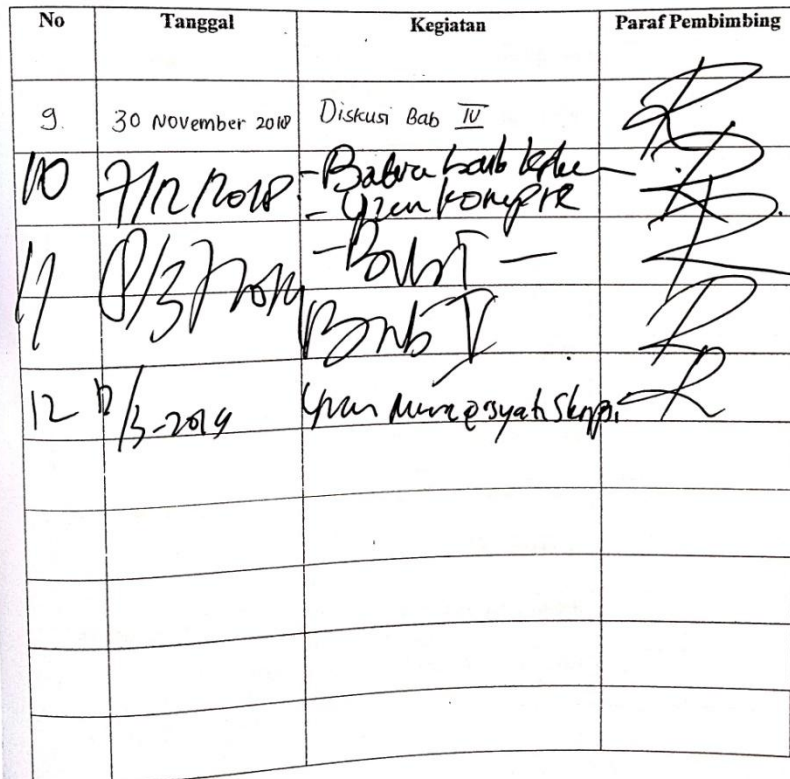 No Tanggal Kegiatan Paraf Pembimbing
9. 30 November 2018 Diskusi Bab IV
10 7/12/2018 - bab
- Ujian kompre
11 8/3 - Bab I -
Bab V
12 12/3-2019 Ujian Munaqosyah Skripsi